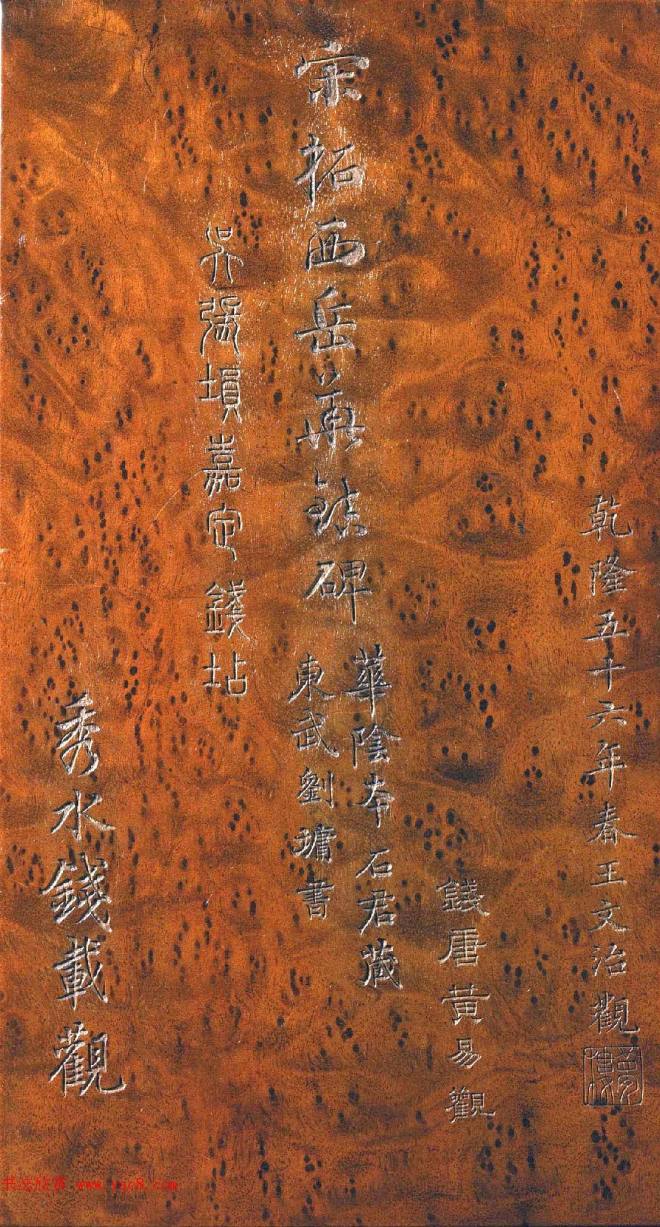 乾隆五十六年春王文治觀
夢樓
錢唐黃易觀
宋拓西岳華碑
華陰本石君藏
東武劉墉書
吳張塤嘉定錢坫
秀水錢載觀
书法欣赏 www.yac8.com